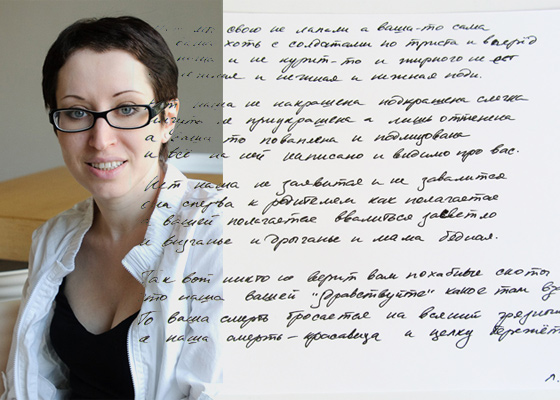 свою не лапали а ваша-то сама
хоть с солдатами по триста и вперёд
и не курит-то и жирного не ест
и нежная и нежная поди.
наша не накрашена подкрашена слегка
не приукрашена а лишь оттенена
а ваша-то поваплена и подлицована
и всё на ней написано и видимо про вас.
Нет наша не заявится и не завалится
она сперва к родителям как полагается
а вашей полагается ввалиться засветло
и визганье и дрыганье и мама бедная.
Так вот никто не верит вам похабные скоты
что наша вашей "Здравствуйте" какое там
То ваша смерть бросается на всякий
а наша смерть-красавица и целку бережёт